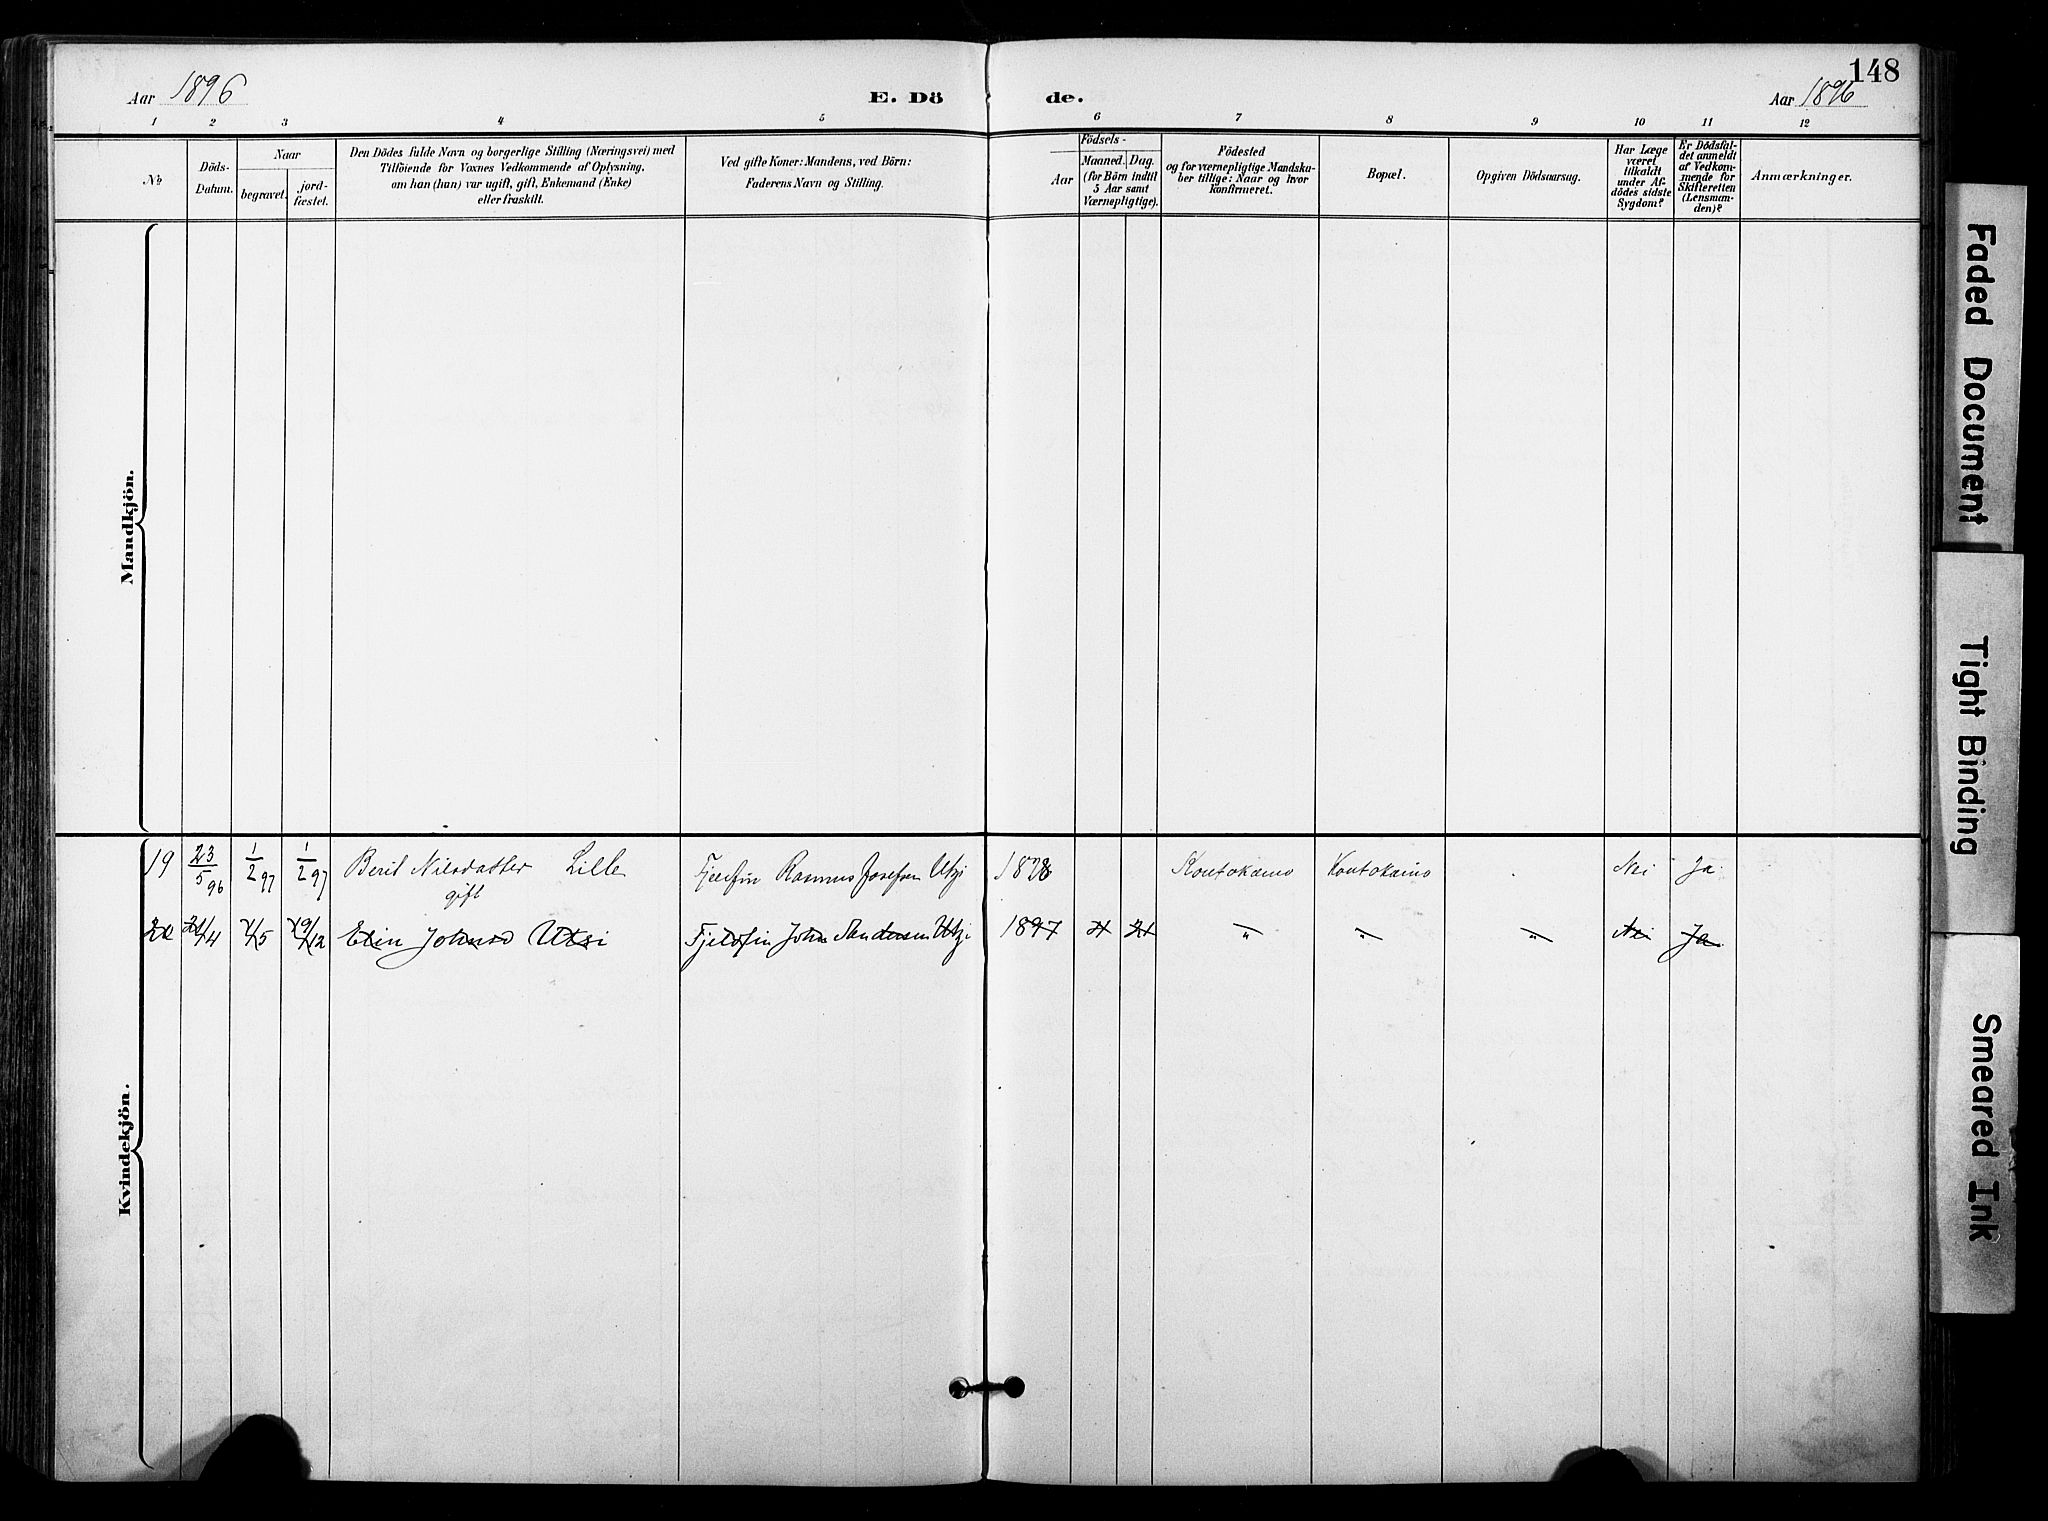 148
Aar 1896
E. Dö
de.
Aar 1896
1 2 3 4 5 6 7 8 9 10 11 12
№
Döds-
Datum.
Naar
begravet.
jord-
fæstet.
Den Dödes fulde Navn og borgerlige Stilling (Næringsvei) med
Tilföiende for Voxnes Vedkommende af Oplysning,
om han (hun) var ugift, gift, Enkemand (Enke)
eller fraskilt.
Ved gifte Koner: Mandens, ved Börn:
Faderens Navn og Stilling.
Födsels-
Aar
Maaned. Dag.
(for Börn indtil
5 Aar samt
Værnepligtige).
Födested
og for værnepligtige Mandska-
ber tillige: Naar og hvor
konfirmeret.
Bopæl.
Opgiven Dödsaarsag.
Har Læge
været
tilkaldt
under Af-
dödes sidste
Sygdom?
Er Dödsfal-
det anmeldt
af Vedkom-
mende for
Skifteretten
(Lensman-
den)?
Anmærkninger.
Mandkjön.
Kvindekjön.
19 23/5 96 1/2 97 1/2 97 Berit Nilsdatter Lille Fjeldfin Rasmus Josefsen Utsi 1828 Koutokæino Koutokæino Nei Ja
gift
21/4 1/5 19/12 Elin Johnsd Utsi Fjeldfin John Andersen Utsi 1897 4 21 " " " Nei Ja
Faded Document
Tight Binding
Smeared Ink